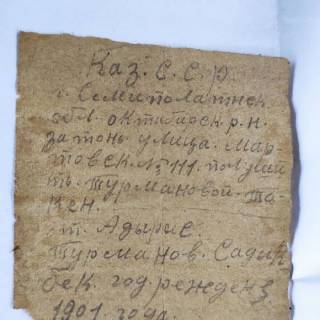 Каз. С. С. Р.
г. Семиполатнск
обл. октабирск р. н.
затонь улица. Мар-
товск. № 111. полувай
ть. Турмановой. То-
кен.
от. Адылис.
Турсманов. Садык
бек. год режден
1901 года.